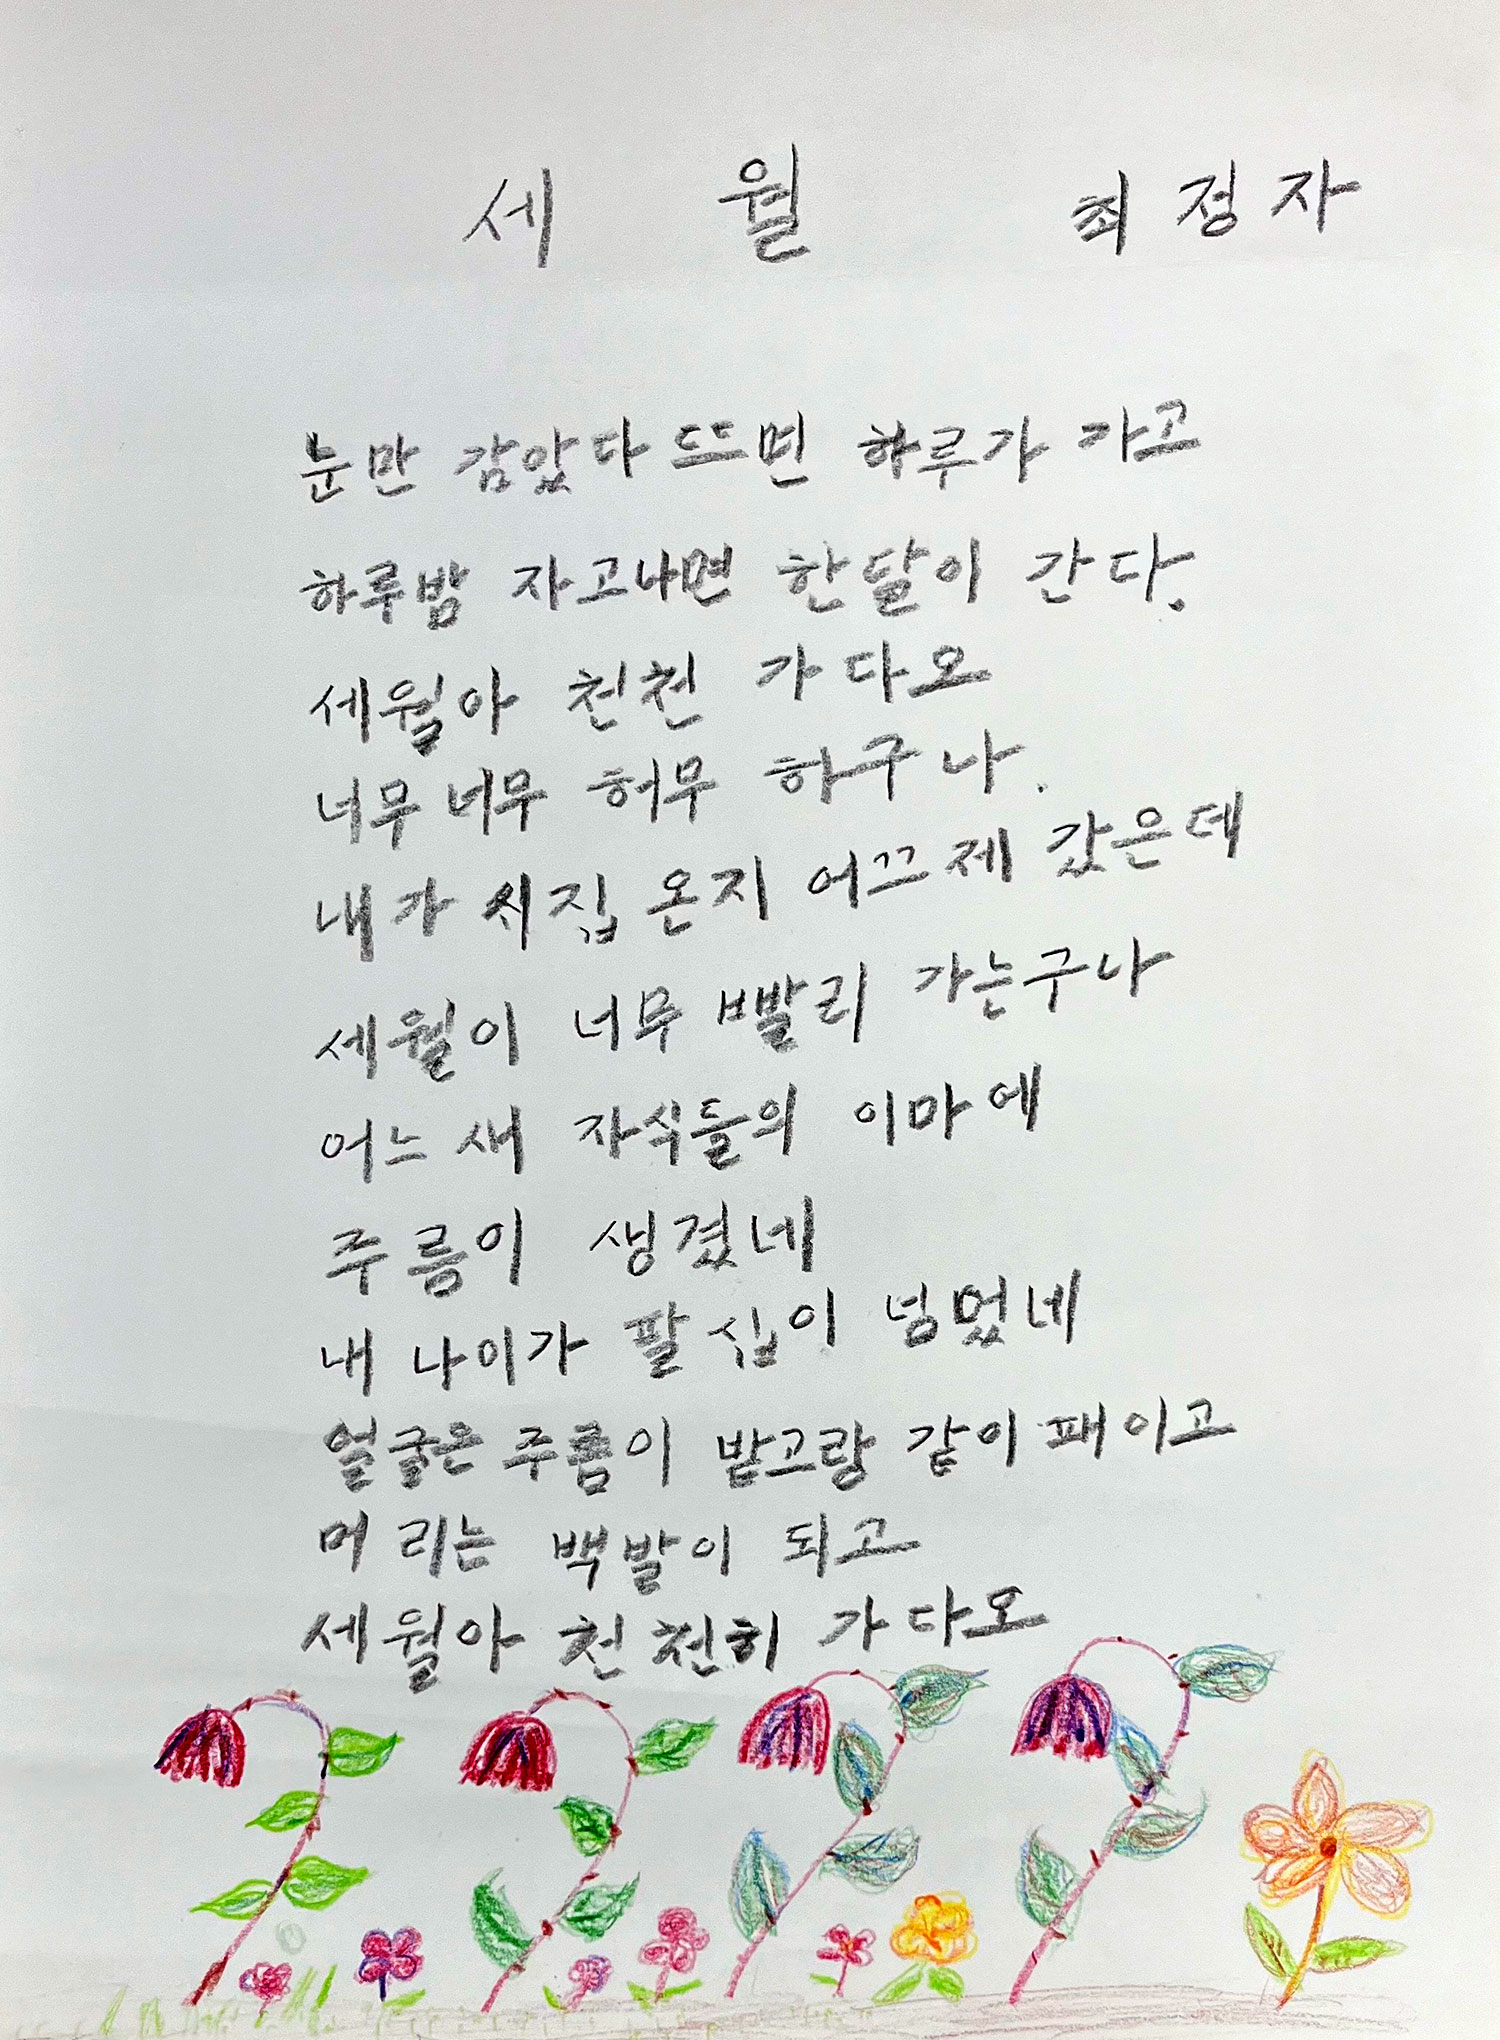 세 월 최정자
눈만 감았다 뜨면 하루가 가고
하루밤 자고나면 한달이 간다.
세월아 천천 가다오
너무 너무 허무 하구나.
내가 시집 온지 어끄제 갔은데
세월이 너무 빨리 가는구나
어느새 자식들의 이마에
주름이 생겼네
내 나이가 팔십이 넝멌네
얼굴은 주름이 밭고랑 같이 패이고
머리는 백발이 되고
세월아 천천히 가다오